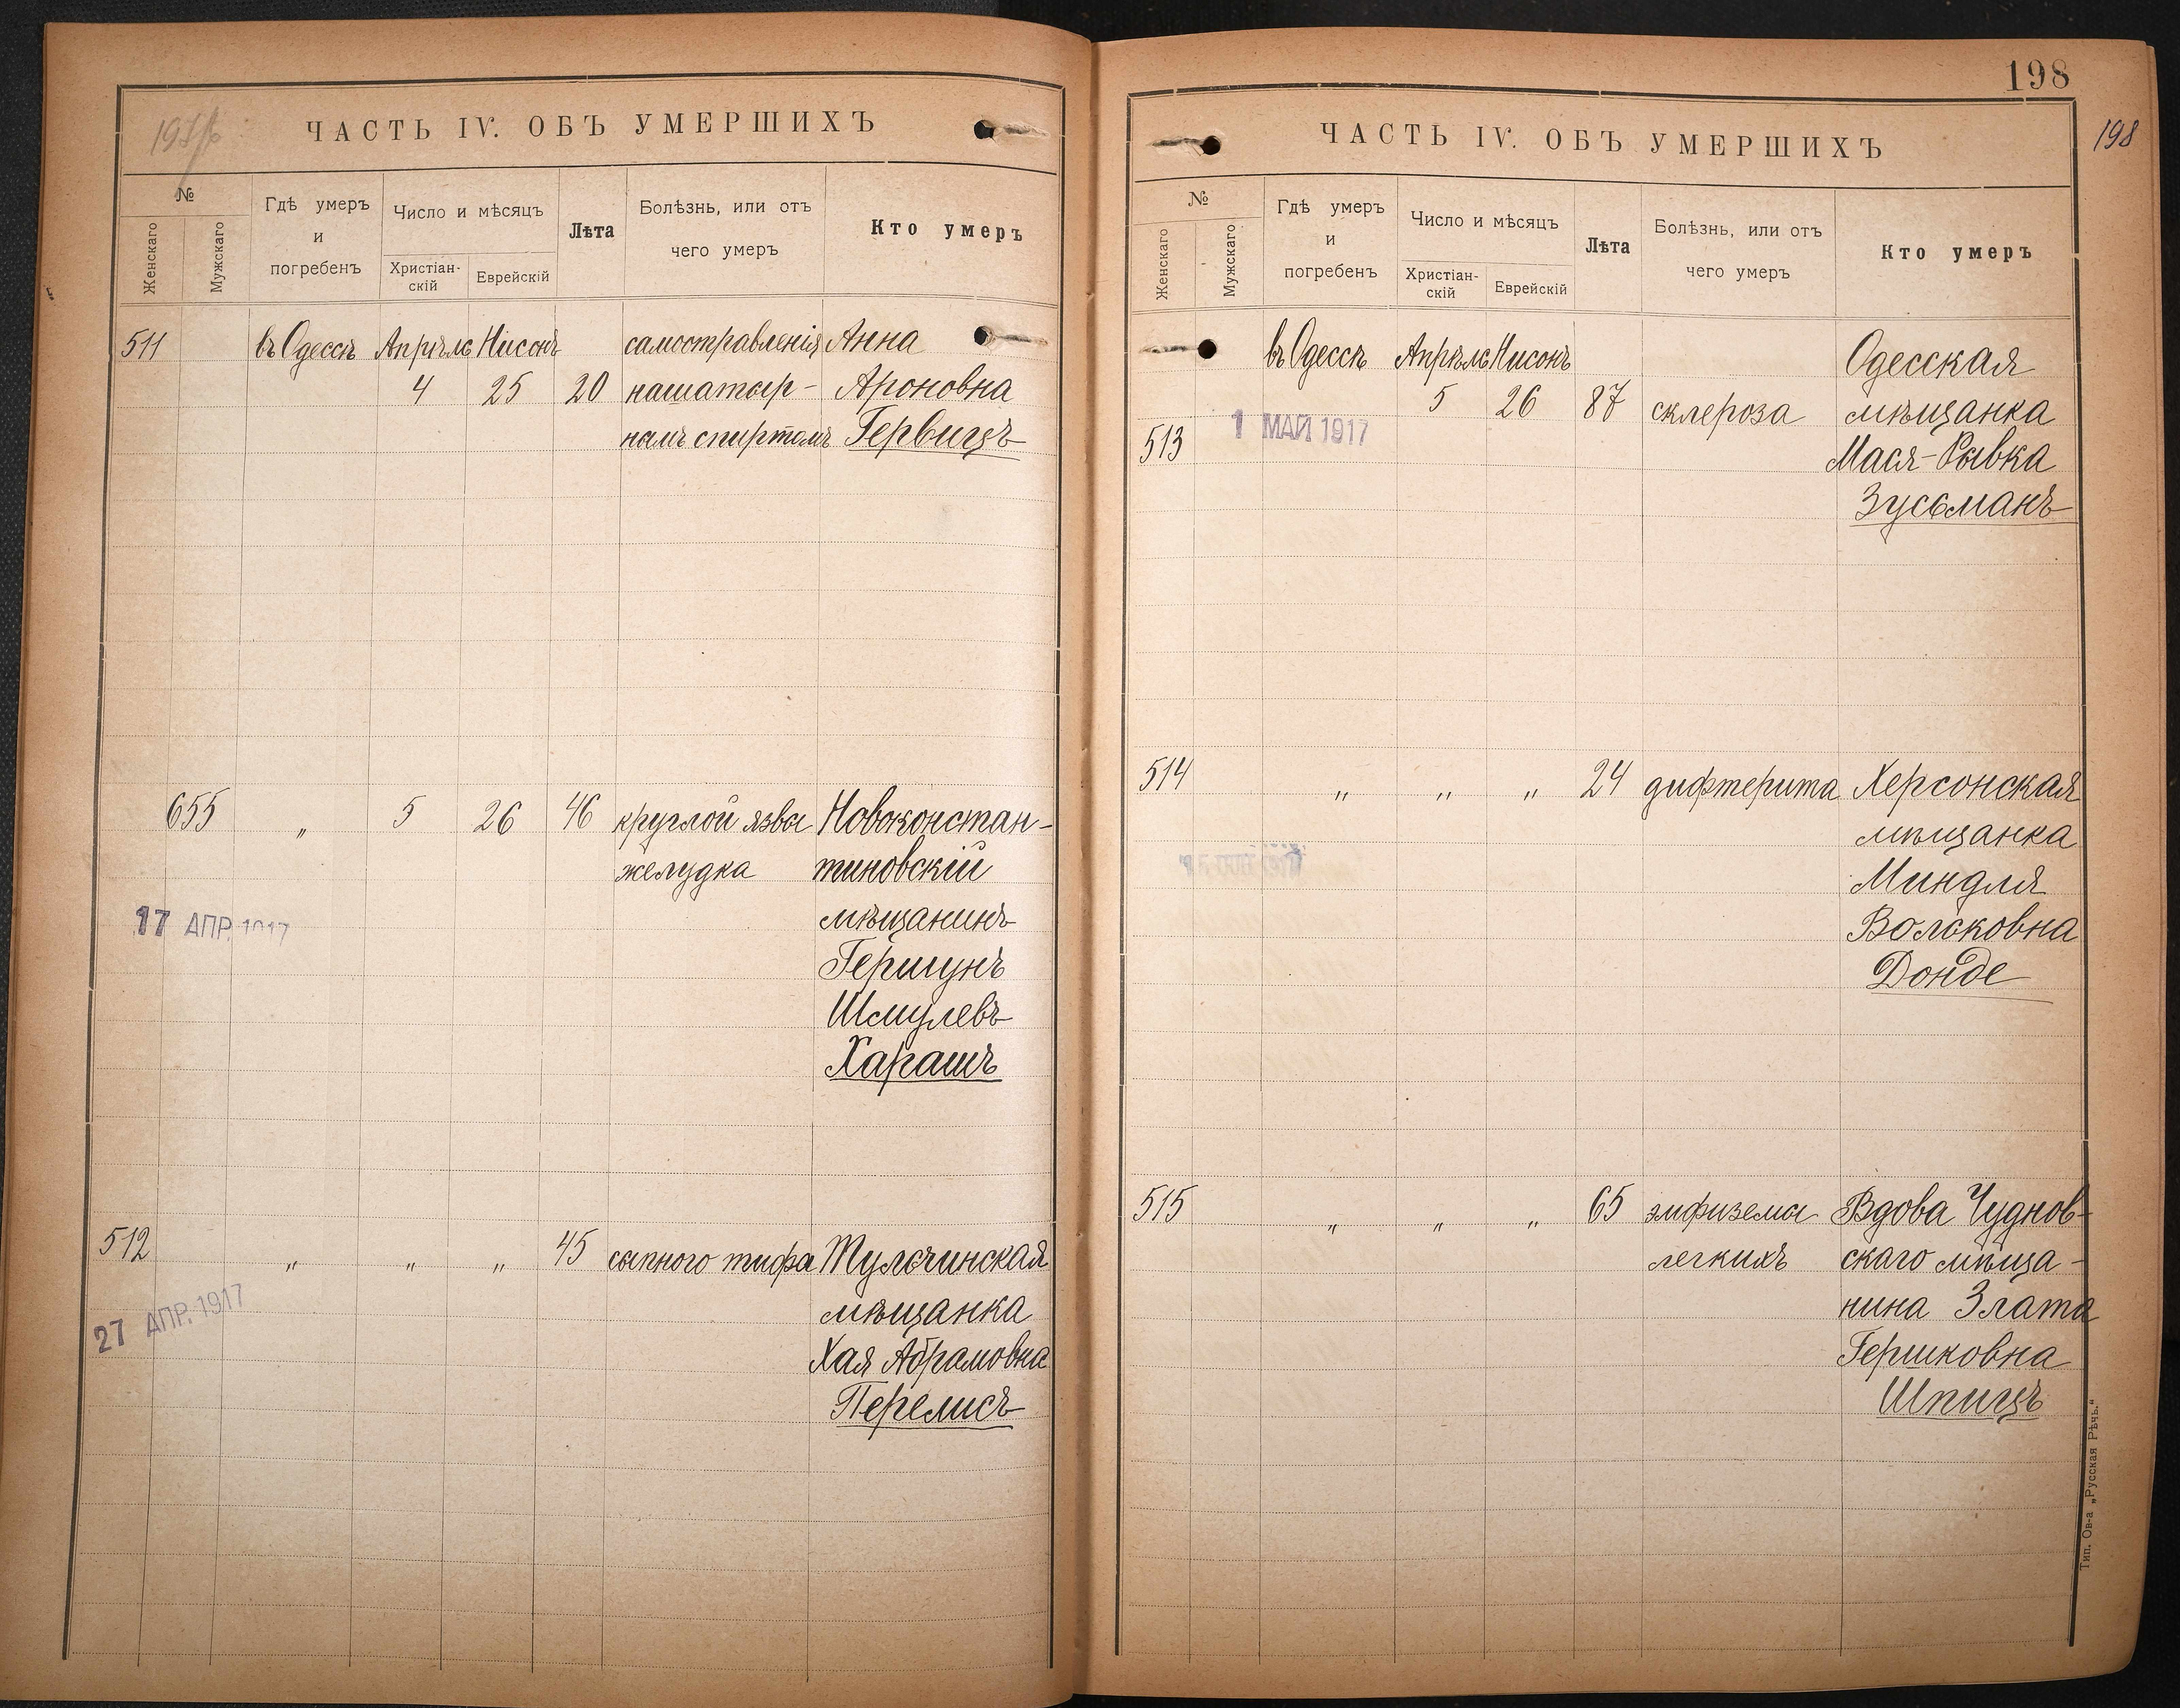 ЧАСТЬ IV. ОБЪ УМЕРШИХЪ
№
Женскаго
Мужскаго
Гдѣ умеръ
и
погребенъ
Число и мѣсяцъ
Христіан-
скій
Еврейскій
Лѣта
Болѣзнь, или отъ
чего умеръ
Кто умеръ
511 въ Одессѣ Апрѣль Нисонъ самостравленія Анна
4 25 20 нашатыр- Ароновна
нымъ спиртомъ Гервицъ
655 " 5 26 46 круглой язвы Новоконстан-
желудка тиновскій
17 АПР. 1917 мѣщанинъ
Гершунъ
Шмулевъ
Харашъ
512 " " " 45 сыпного тифа Тульчинская
27 АПР. 1917 мѣщанка
Хая Абрамовна
Перелисъ
198
198
ЧАСТЬ IV. ОБЪ УМЕРШИХЪ
№
Женскаго
Мужскаго
Гдѣ умеръ
и
погребенъ
Число и мѣсяцъ
Христіан-
скій
Еврейскій
Лѣта
Болѣзнь, или отъ
чего умеръ
Кто умеръ
въ Одессѣ Апрѣль Нисонъ Одесская
5 26 87 склероза мѣщанка
513 1 МАЙ 1917 Мася-Рывка
Зусьманъ
514 " " " 24 дифтерита Херсонская
мѣщанка
Миндля
Вольковна
Донде
515 " " " 65 эмфизема Вдова Чуднов-
легкихъ скаго мѣща-
нина Злата
Гершковна
Шпицъ
Тип. Ов-а „Русская Рѣчь."